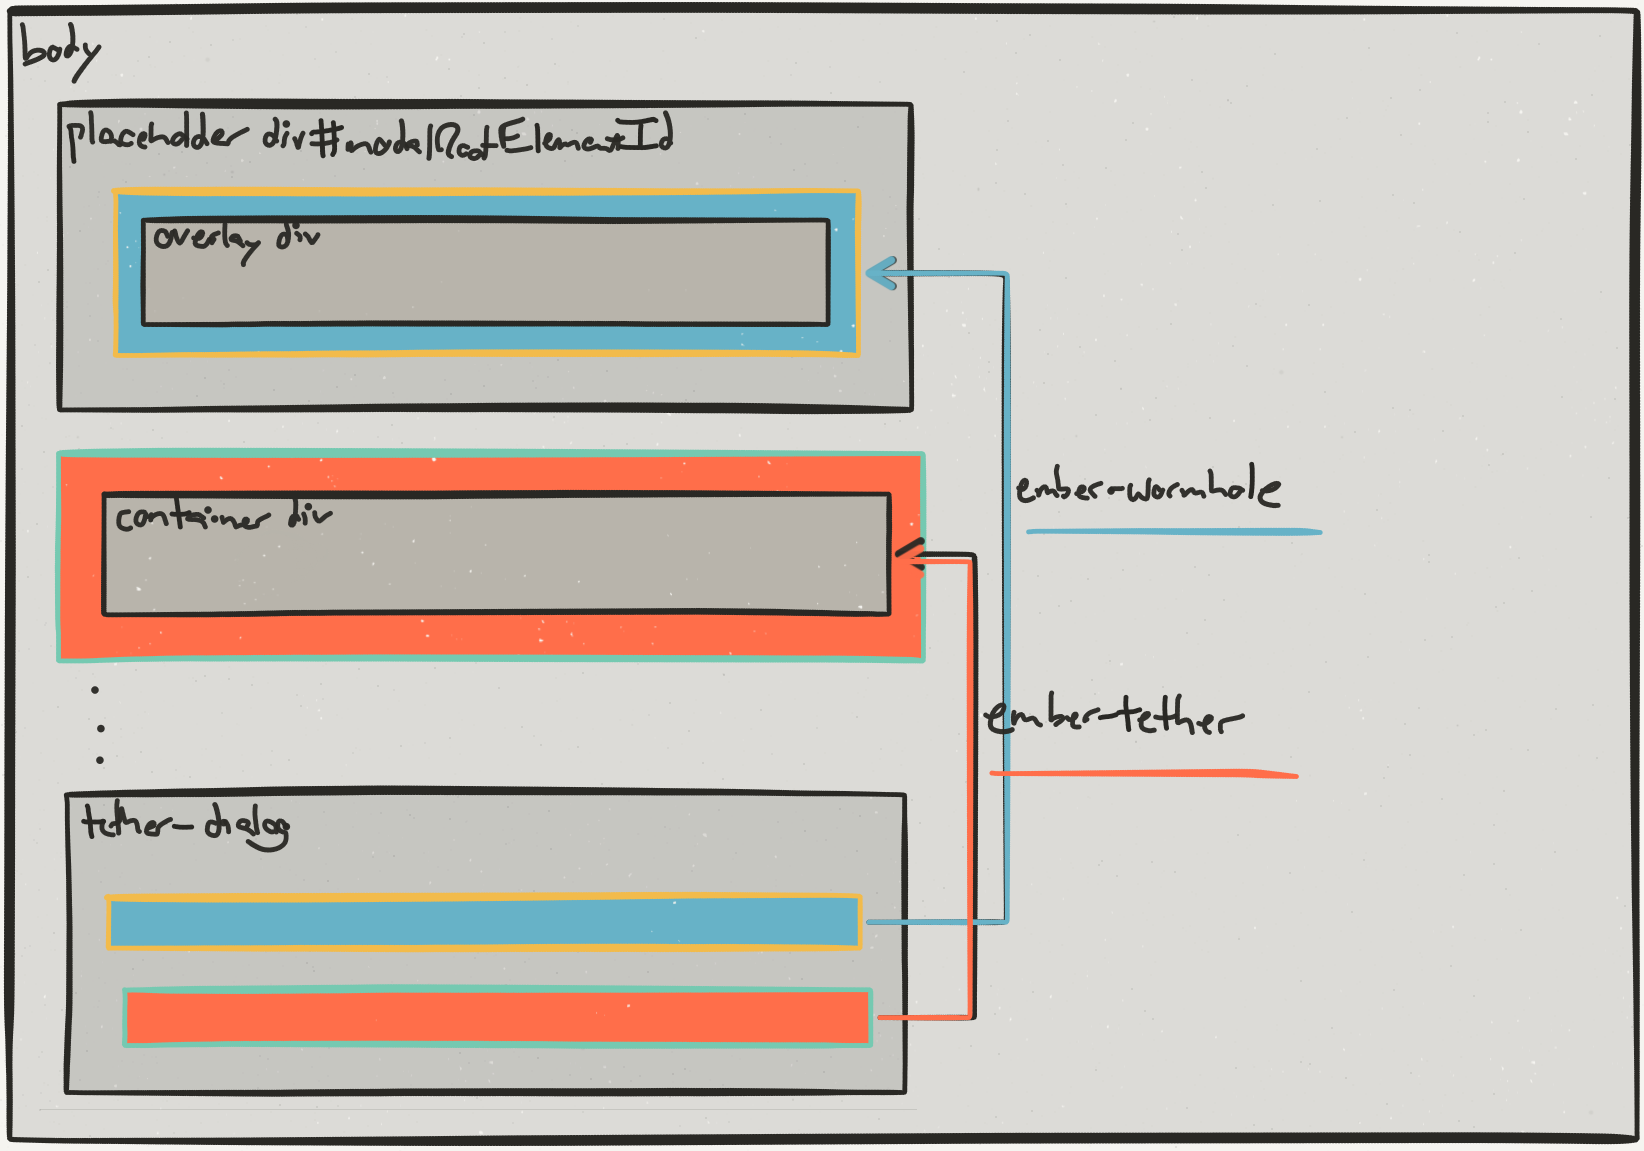 body
placeholder div#modalRootElementId
overlay div
container div
ember-wormhole
ember-tether
tether-dialog